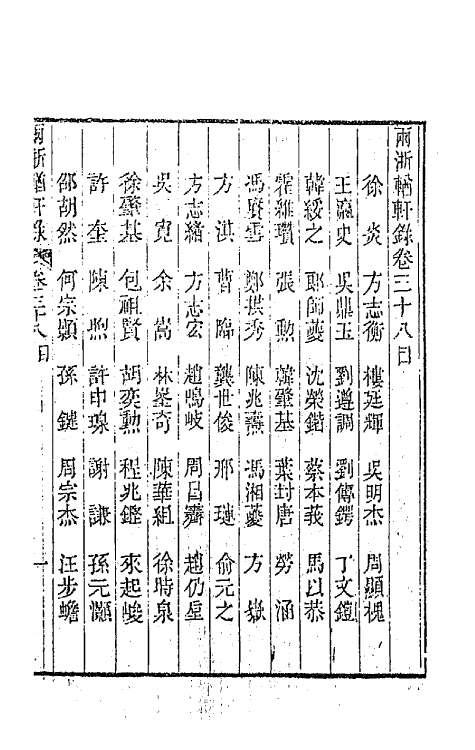 兩浙輶軒錄卷三十八目
徐炎 方志衡 樓廷輝 吳明杰 周顯槐
王瀛史 吳鼎玉 劉遵調 劉傳鍔 丁文鎧
韓綏之 耶師夔 沈榮鍇 蔡本莪 馬以恭
霍維瓚 張勲 韓肇基 葉封唐 勞涵
馮賢雲 鄭棋秀 陳兆燾 馮湘蘷 方嶽
方淇 曹臨 龔世俊 邢璉 俞元之
方志緒 方志宏 趙鳴岐 周昌 趙仍垕
吳寛 余嵩 林崟奇 陳華組 徐時泉
徐肇基 包祖賢 胡奕勲 程兆鏗 來起峻
許奎 陳煦 許申瑔 謝謙 孫元灝
邵胡然 何宗顥 孫鏈 周宗杰 汪步蟾
兩浙輶軒錄 卷三十八目 一